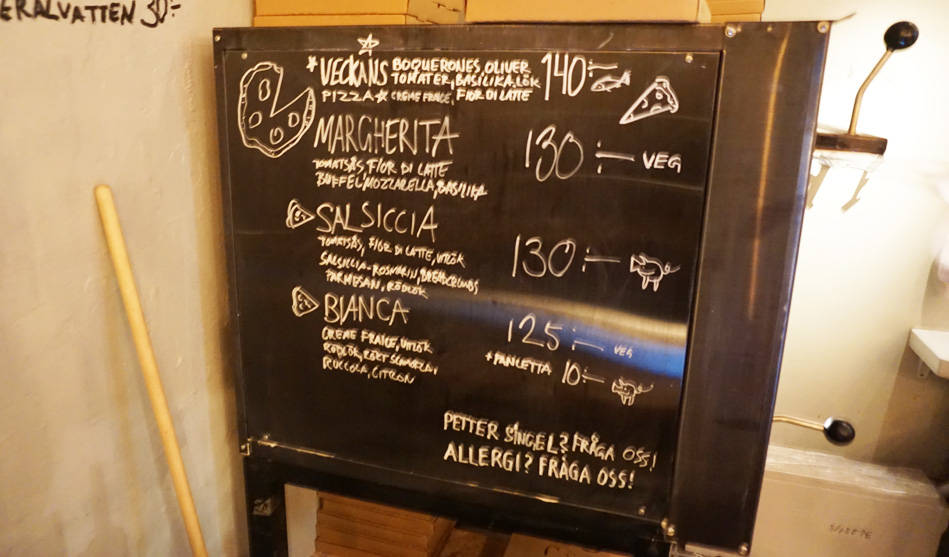 ERALVATTEN 30:-
VECKANS BOQUERONES, OLIVER 140:-
TOMATER, BASILIKA, LÖK
PIZZA CREME FRAICE, FIOR DI LATTE
MARGHERITA 130:- VEG
TOMATSÅS, FIOR DI LATTE
BUFFEL MOZZARELLA, BASILIKA
SALSICCIA 130:-
TOMATSÅS, FIOR DI LATTE, VITLÖK
SALSICCIA-ROSMARIN, BREADCRUMBS
PARMESAN, RÖDLÖK
BIANCA 125:- VEG
CREME FRAICE, VITLÖK
RÖDLÖK, RÖKT SCAMORZA,
RUCCOLA, CITRON
+ PANCETTA 10:-
PETTER SINGEL? FRÅGA OSS!
ALLERGI? FRÅGA OSS!